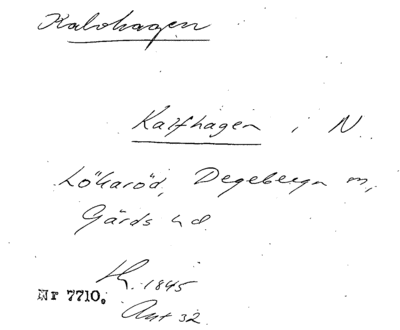 Kalvhagen
Kalfhagen i N.
Lökaröd, Degeberga
Gärds hd
1845
Nr 7710.
Akt 32